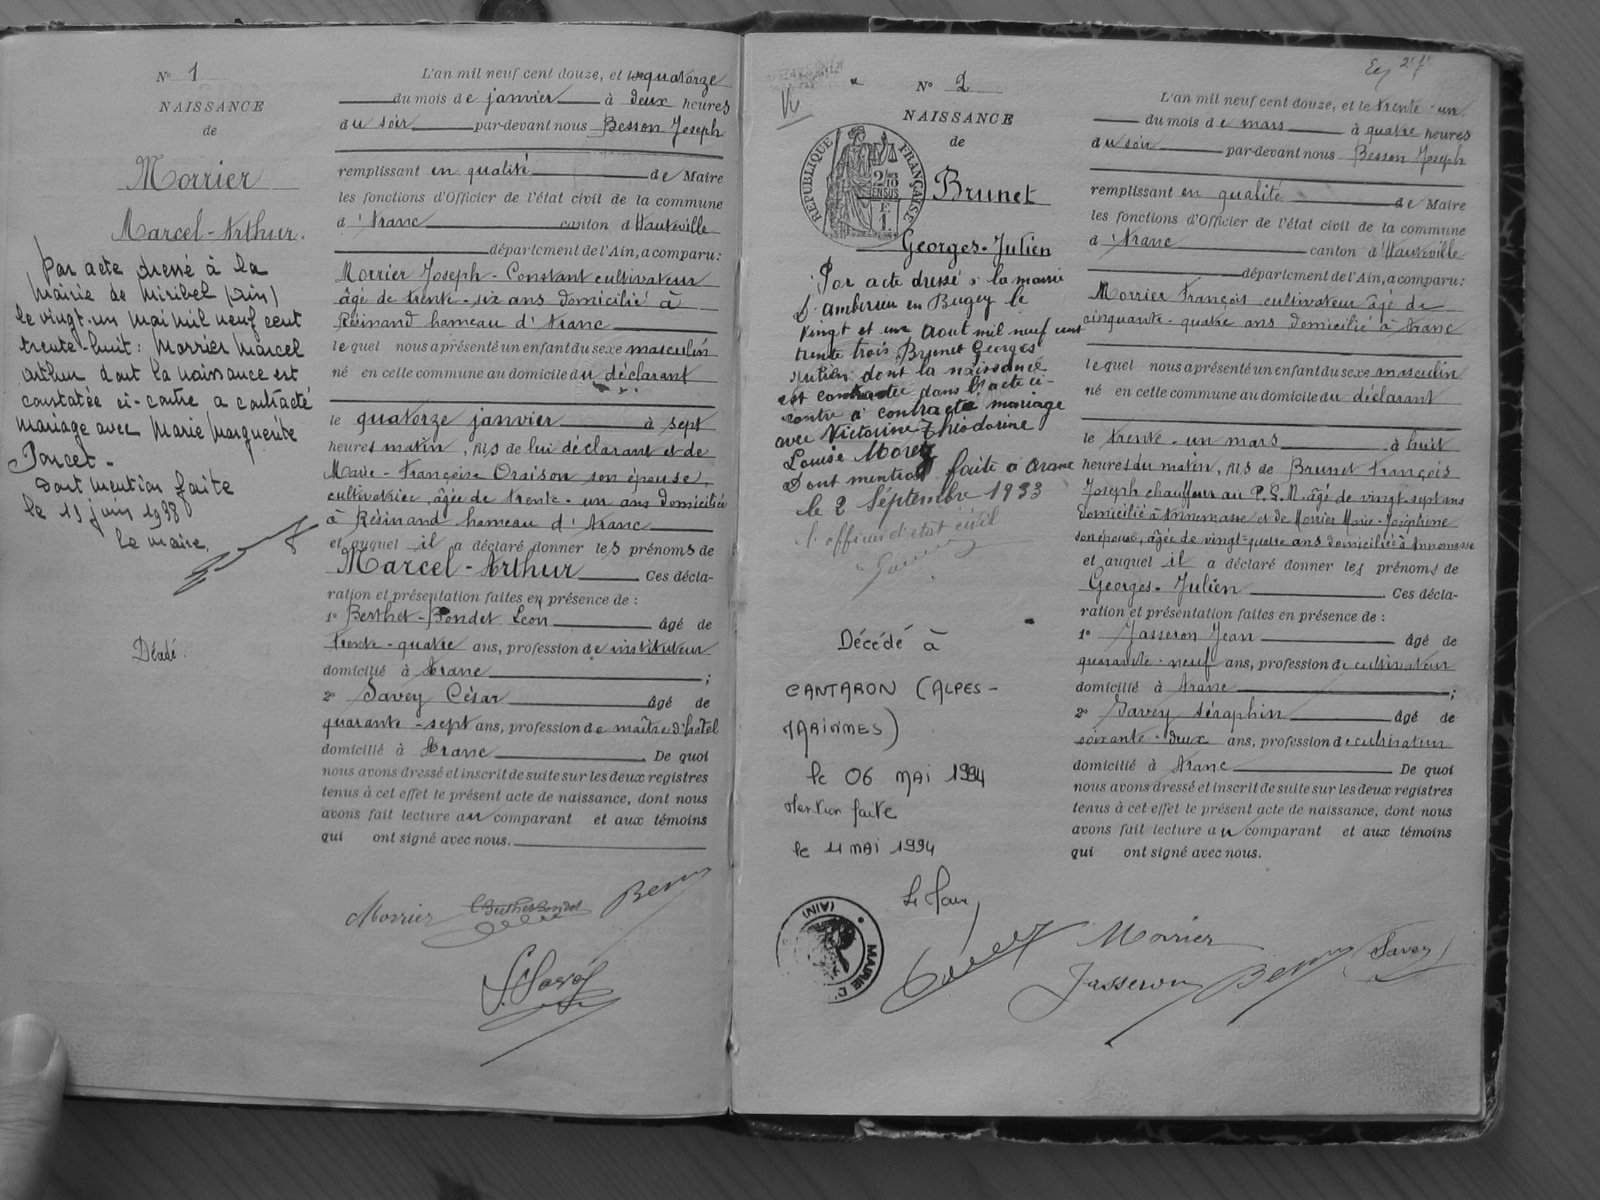 N° 1
NAISSANCE
de
Morrier
Marcel-Arthur.
Par acte dressé à la
Mairie de Miribel (Ain)
le vingt-un mai mil neuf cent
trente-huit: Morrier Marcel
Arthur dont la naissance est
constatée ci-contre a contracté
mariage avec Marie Marguerite
Poncet -
Dont mention faite
le 15 juin 1938
Le maire,
Décédé.
L'an mil neuf cent douze, et le quatorze
du mois de janvier à deux heures
du soir par-devant nous Besson Joseph
remplissant en qualité de Maire
les fonctions d'Officier de l'état civil de la commune
d'Aranc canton d'Hauteville
département de l'Ain, a comparu:
Morrier Joseph-Constant cultivateur
âgé de trente-six ans domicilié à
Résinand hameau d'Aranc
lequel nous a présenté un enfant du sexe masculin
né en cette commune au domicile du déclarant
le quatorze janvier à sept
heures matin, fils de lui déclarant et de
Marie-Françoise Oraison son épouse,
cultivatrice, âgée de trente-un ans domiciliée
à Résinand hameau d'Aranc
et auquel il a déclaré donner les prénoms de
Marcel-Arthur Ces décla-
ration et présentation faites en présence de :
1° Berthet-Bondet Léon âgé de
trente-quatre ans, profession de instituteur
domicilié à Aranc ;
2° Savey César âgé de
quarante-sept ans, profession de maître d'hôtel
domicilié à Aranc. De quoi
nous avons dressé et inscrit de suite sur les deux registres
tenus à cet effet le présent acte de naissance, dont nous
avons fait lecture au comparant et aux témoins
qui ont signé avec nous.
Morrier
N° 2
NAISSANCE
de
RÉPUBLIQUE FRANÇAISE
Brunet
Georges-Julien
Par acte dressé à la mairie
d'Ambérieu en Bugey le
vingt et un Août mil neuf cent
trente trois, Brunet Georges
Julien dont la naissance
est constatée dans l'acte ci-
contre a contracté mariage
avec Victorine Théodorine
Louise Moretz
Dont mention faite à Aranc
le 2 Septembre 1933
l'officier d'état civil
Décédé à
CANTARON (ALPES-
MARITIMES)
le 06 MAI 1994
Mention faite
le 11 MAI 1994
Le Maire,
MAIRIE D'
(AIN)
L'an mil neuf cent douze, et le trente-un
du mois de mars à quatre heures
du soir par-devant nous Besson Joseph
remplissant en qualité de Maire
les fonctions d'Officier de l'état civil de la commune
d'Aranc canton d'Hauteville
département de l'Ain, a comparu:
Morrier François cultivateur âgé de
cinquante-quatre ans domicilié à Aranc
lequel nous a présenté un enfant du sexe masculin
né en cette commune au domicile du déclarant
le trente-un mars à huit
heures du matin, fils de Brunet François
Joseph chauffeur au P.L.M. âgé de vingt-sept ans
domicilié à Annemasse et de Morrier Marie-Joséphine
son épouse, âgée de vingt-quatre ans domiciliée à Annemasse
et auquel il a déclaré donner les prénoms de
Georges-Julien. Ces décla-
ration et présentation faites en présence de :
1° Jasseron Jean âgé de
quarante-neuf ans, profession de cultivateur
domicilié à Aranc ;
2° Savey Séraphin âgé de
soixante-deux ans, profession de cultivateur
domicilié à Aranc. De quoi
nous avons dressé et inscrit de suite sur les deux registres
tenus à cet effet le présent acte de naissance, dont nous
avons fait lecture au comparant et aux témoins
qui ont signé avec nous.
Morrier
Jasseron
Savey